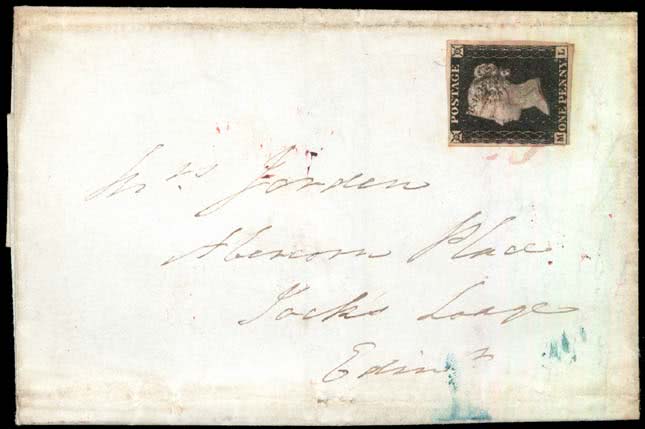 POSTAGE
ONE PENNY
M L
Mrs Jorden
Abercorn Place
Jock's Loage
Edinr